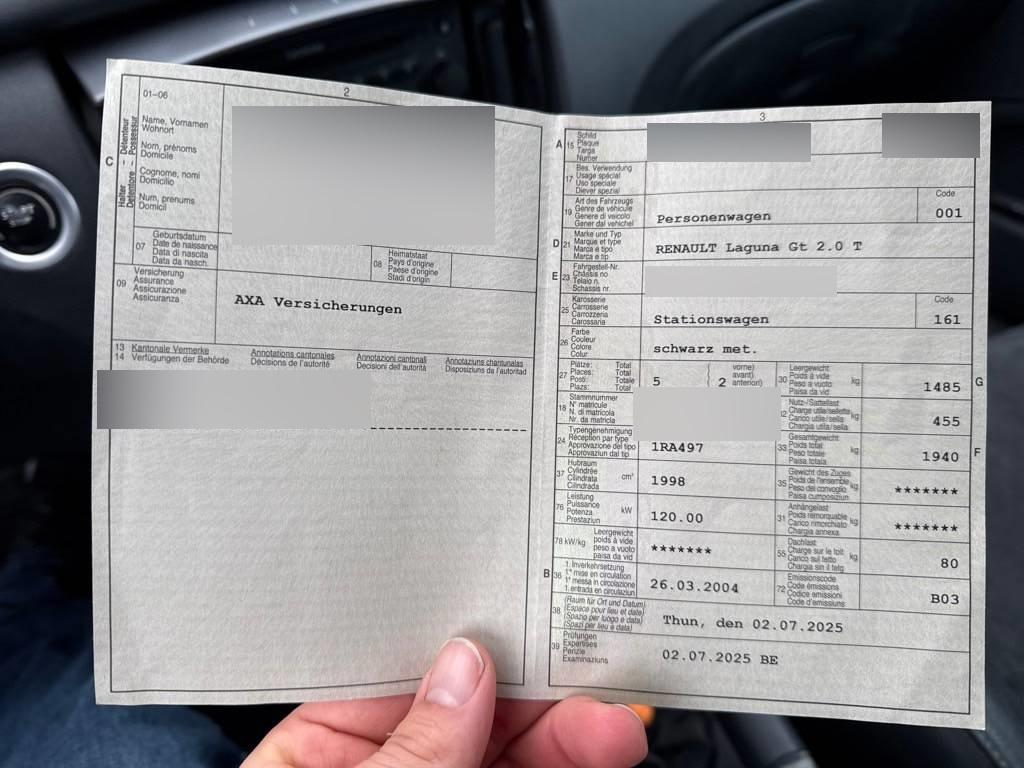 2
01–06
Name, Vornamen
Wohnort
Nom, prénoms
Domicile
Cognome, nomi
Domicilio
Num, prenums
Domicil
C
Halter – Détenteur
Detentore – Possessur
07
Geburtsdatum
Date de naissance
Data di nascita
Data da nasch.
08
Heimatstaat
Pays d'origine
Paese d'origine
Stadi d'origin
09
Versicherung
Assurance
Assicurazione
Assicuranza
AXA Versicherungen
13 Kantonale Vermerke
14 Verfügungen der Behörde
Annotations cantonales
Décisions de l'autorité
Annotazioni cantonali
Decisioni dell'autorità
Annotaziuns chantunalas
Disposiziuns da l'autoritad
3
A
15
Schild
Plaque
Targa
Numer
17
Bes. Verwendung
Usage spécial
Uso speciale
Diever spezial
19
Art des Fahrzeugs
Genre de véhicule
Genere di veicolo
Gener dal vehichel
Personenwagen
Code
001
D
21
Marke und Typ
Marque et type
Marca e tipo
Marca e tip
RENAULT Laguna Gt 2.0 T
E
23
Fahrgestell-Nr.
Châssis no
Telaio n.
Schassis nr.
25
Karosserie
Carrosserie
Carrozzeria
Carossaria
Stationswagen
Code
161
26
Farbe
Couleur
Colore
Colur
schwarz met.
27
Plätze: Total
Places: Total
Posti: Totale
Plazs: Total
5
( vorne)
avant)
2 anteriori)
30
Leergewicht
Poids à vide
Peso a vuoto
Paisa da vid
kg
1485
G
18
Stammnummer
N° matricule
N. di matricola
Nr. da matricla
Nutz-/Sattellast
Charge utile/sellette
Carico utile/sella
Chargia utila/sella
kg
455
24
Typengenehmigung
Réception par type
Approvazione del tipo
Approvaziun dal tip
1RA497
33
Gesamtgewicht
Poids total
Peso totale
Paisa totala
kg
1940
F
37
Hubraum
Cylindrée
Cilindrata
Cilindrada
cm³
1998
35
Gewicht des Zuges
Poids de l'ensemble
Peso del convoglio
Paisa cumposiziun
kg
*******
76
Leistung
Puissance
Potenza
Prestaziun
kW
120.00
31
Anhängelast
Poids remorquable
Carico rimorchiato
Chargia annexa
kg
*******
78 kW/kg
Leergewicht
poids à vide
peso a vuoto
paisa da vid
*******
55
Dachlast
Charge sur le toit
Carico sul tetto
Chargia sin il tetg
kg
80
B
36
1. Inverkehrsetzung
1re mise en circulation
1a messa in circolazione
1. entrada en circulaziun
26.03.2004
72
Emissionscode
Code émissions
Codice emissioni
Code d'emissiuns
B03
38
(Raum für Ort und Datum)
(Espace pour lieu et date)
(Spazio per luogo e data)
(Spazi per lieu e data)
Thun, den 02.07.2025
39
Prüfungen
Expertises
Perizie
Examinaziuns
02.07.2025 BE